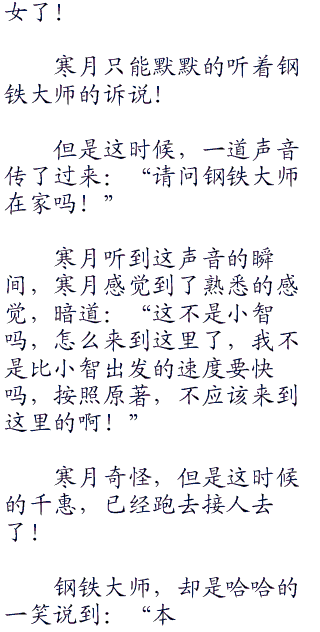 女了！
寒月只能默默的听着钢
铁大师的诉说！
但是这时候，一道声音
传了过来：“请问钢铁大师
在家吗！”
寒月听到这声音的瞬
间，寒月感觉到了熟悉的感
觉，暗道：“这不是小智
吗，怎么来到这里了，我不
是比小智出发的速度要快
吗，按照原著，不应该来到
这里的啊！”
寒月奇怪，但是这时候
的千惠，已经跑去接人去
了！
钢铁大师，却是哈哈的
一笑说到：“本